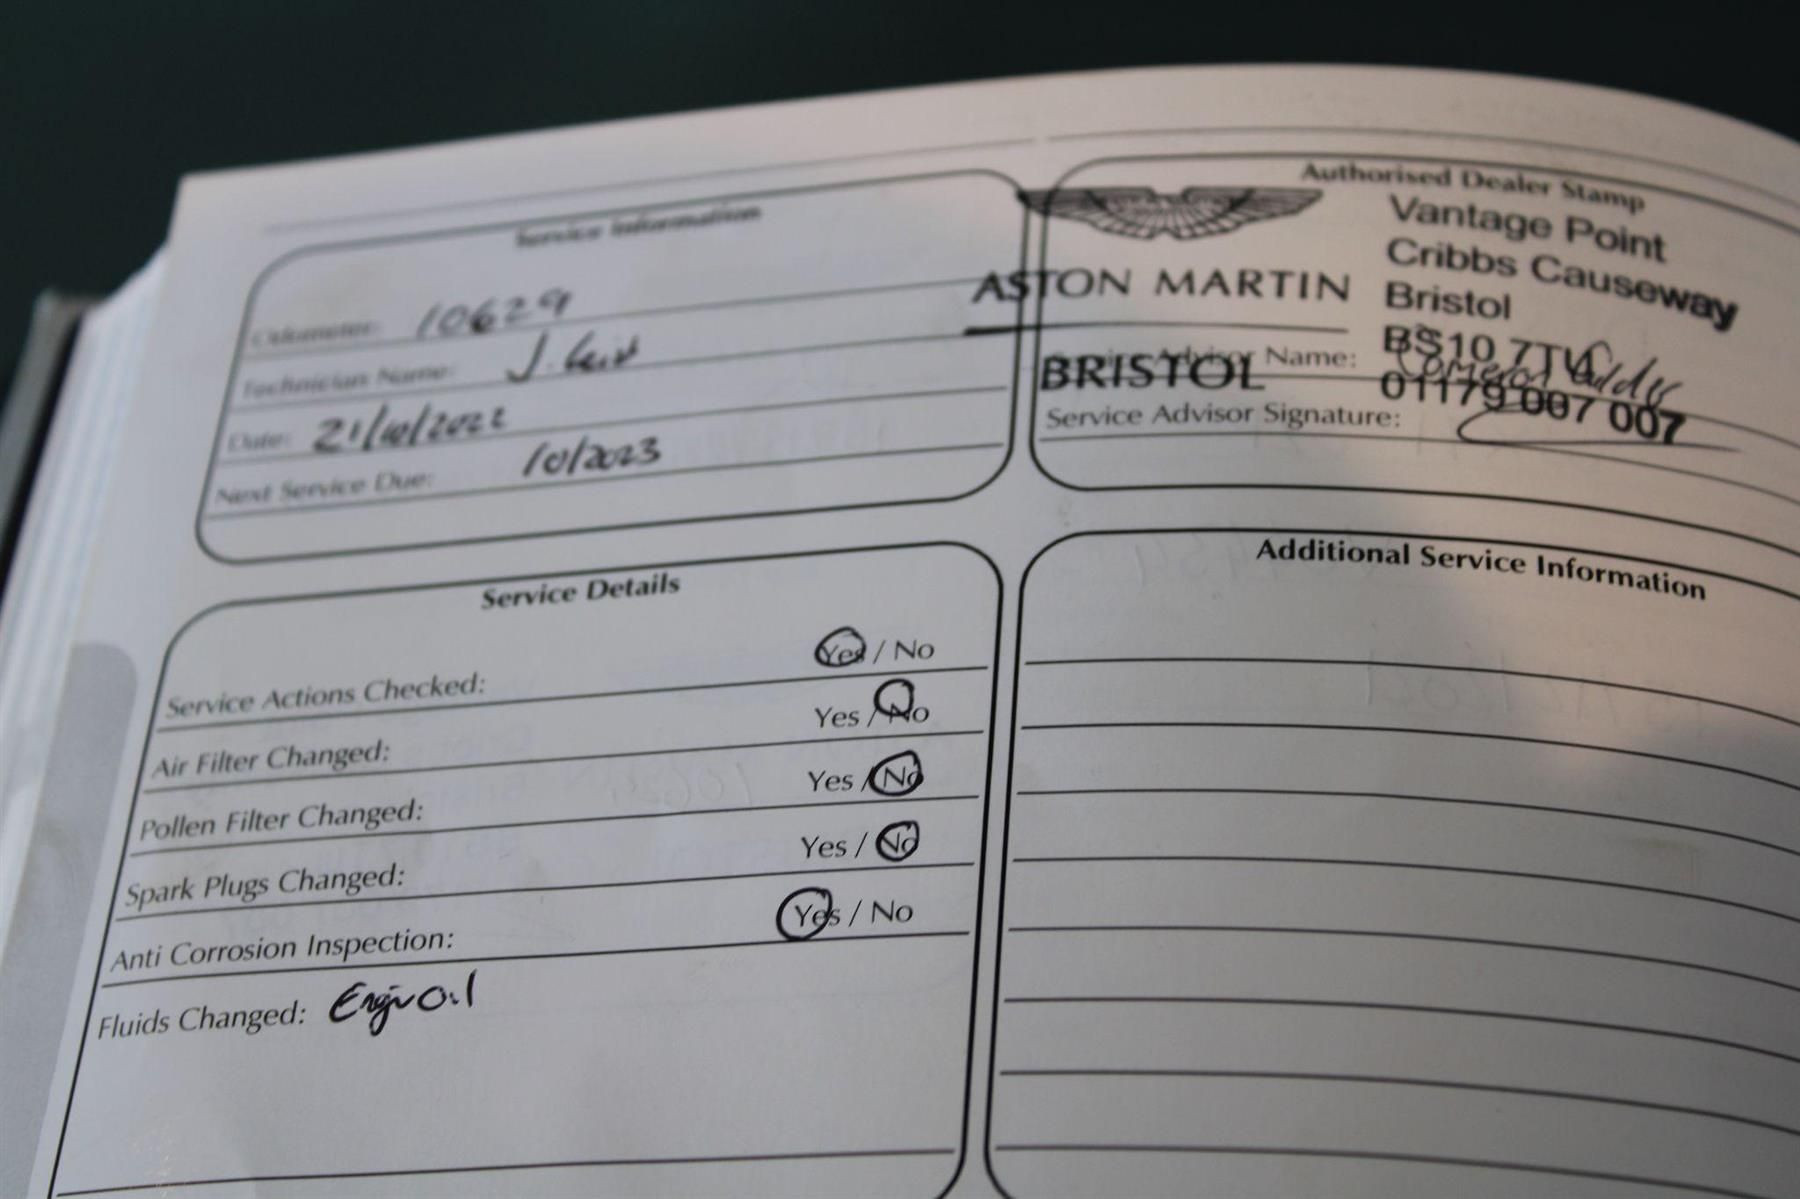 Service Information
Odometer: 10629
Technician Name: J.
Date: 21/10/2022
Next Service Due: 10/2023
Authorised Dealer Stamp
ASTON MARTIN
BRISTOL
Vantage Point
Cribbs Causeway
Bristol
BS10 7TU
01179 007 007
Service Advisor Name:
Service Advisor Signature:
Service Details
Service Actions Checked: Yes / No
Air Filter Changed: Yes / No
Pollen Filter Changed: Yes / No
Spark Plugs Changed: Yes / No
Anti Corrosion Inspection: Yes / No
Fluids Changed: Engin Oil
Additional Service Information